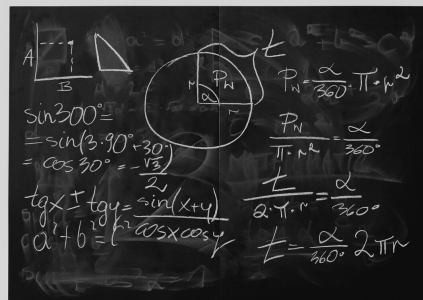 A
B
sin300°=
=sin(3·90°+30°)
=cos30°=-√3/2
tgx ± tgy = sin(x+y)/cosxcosy
a²+b²=c²
t
P_w
r
α
r
P_w = α/360° · π·r²
P_w/π·r² = α/360°
t/2·π·r = α/360°
t = α/360° 2πr